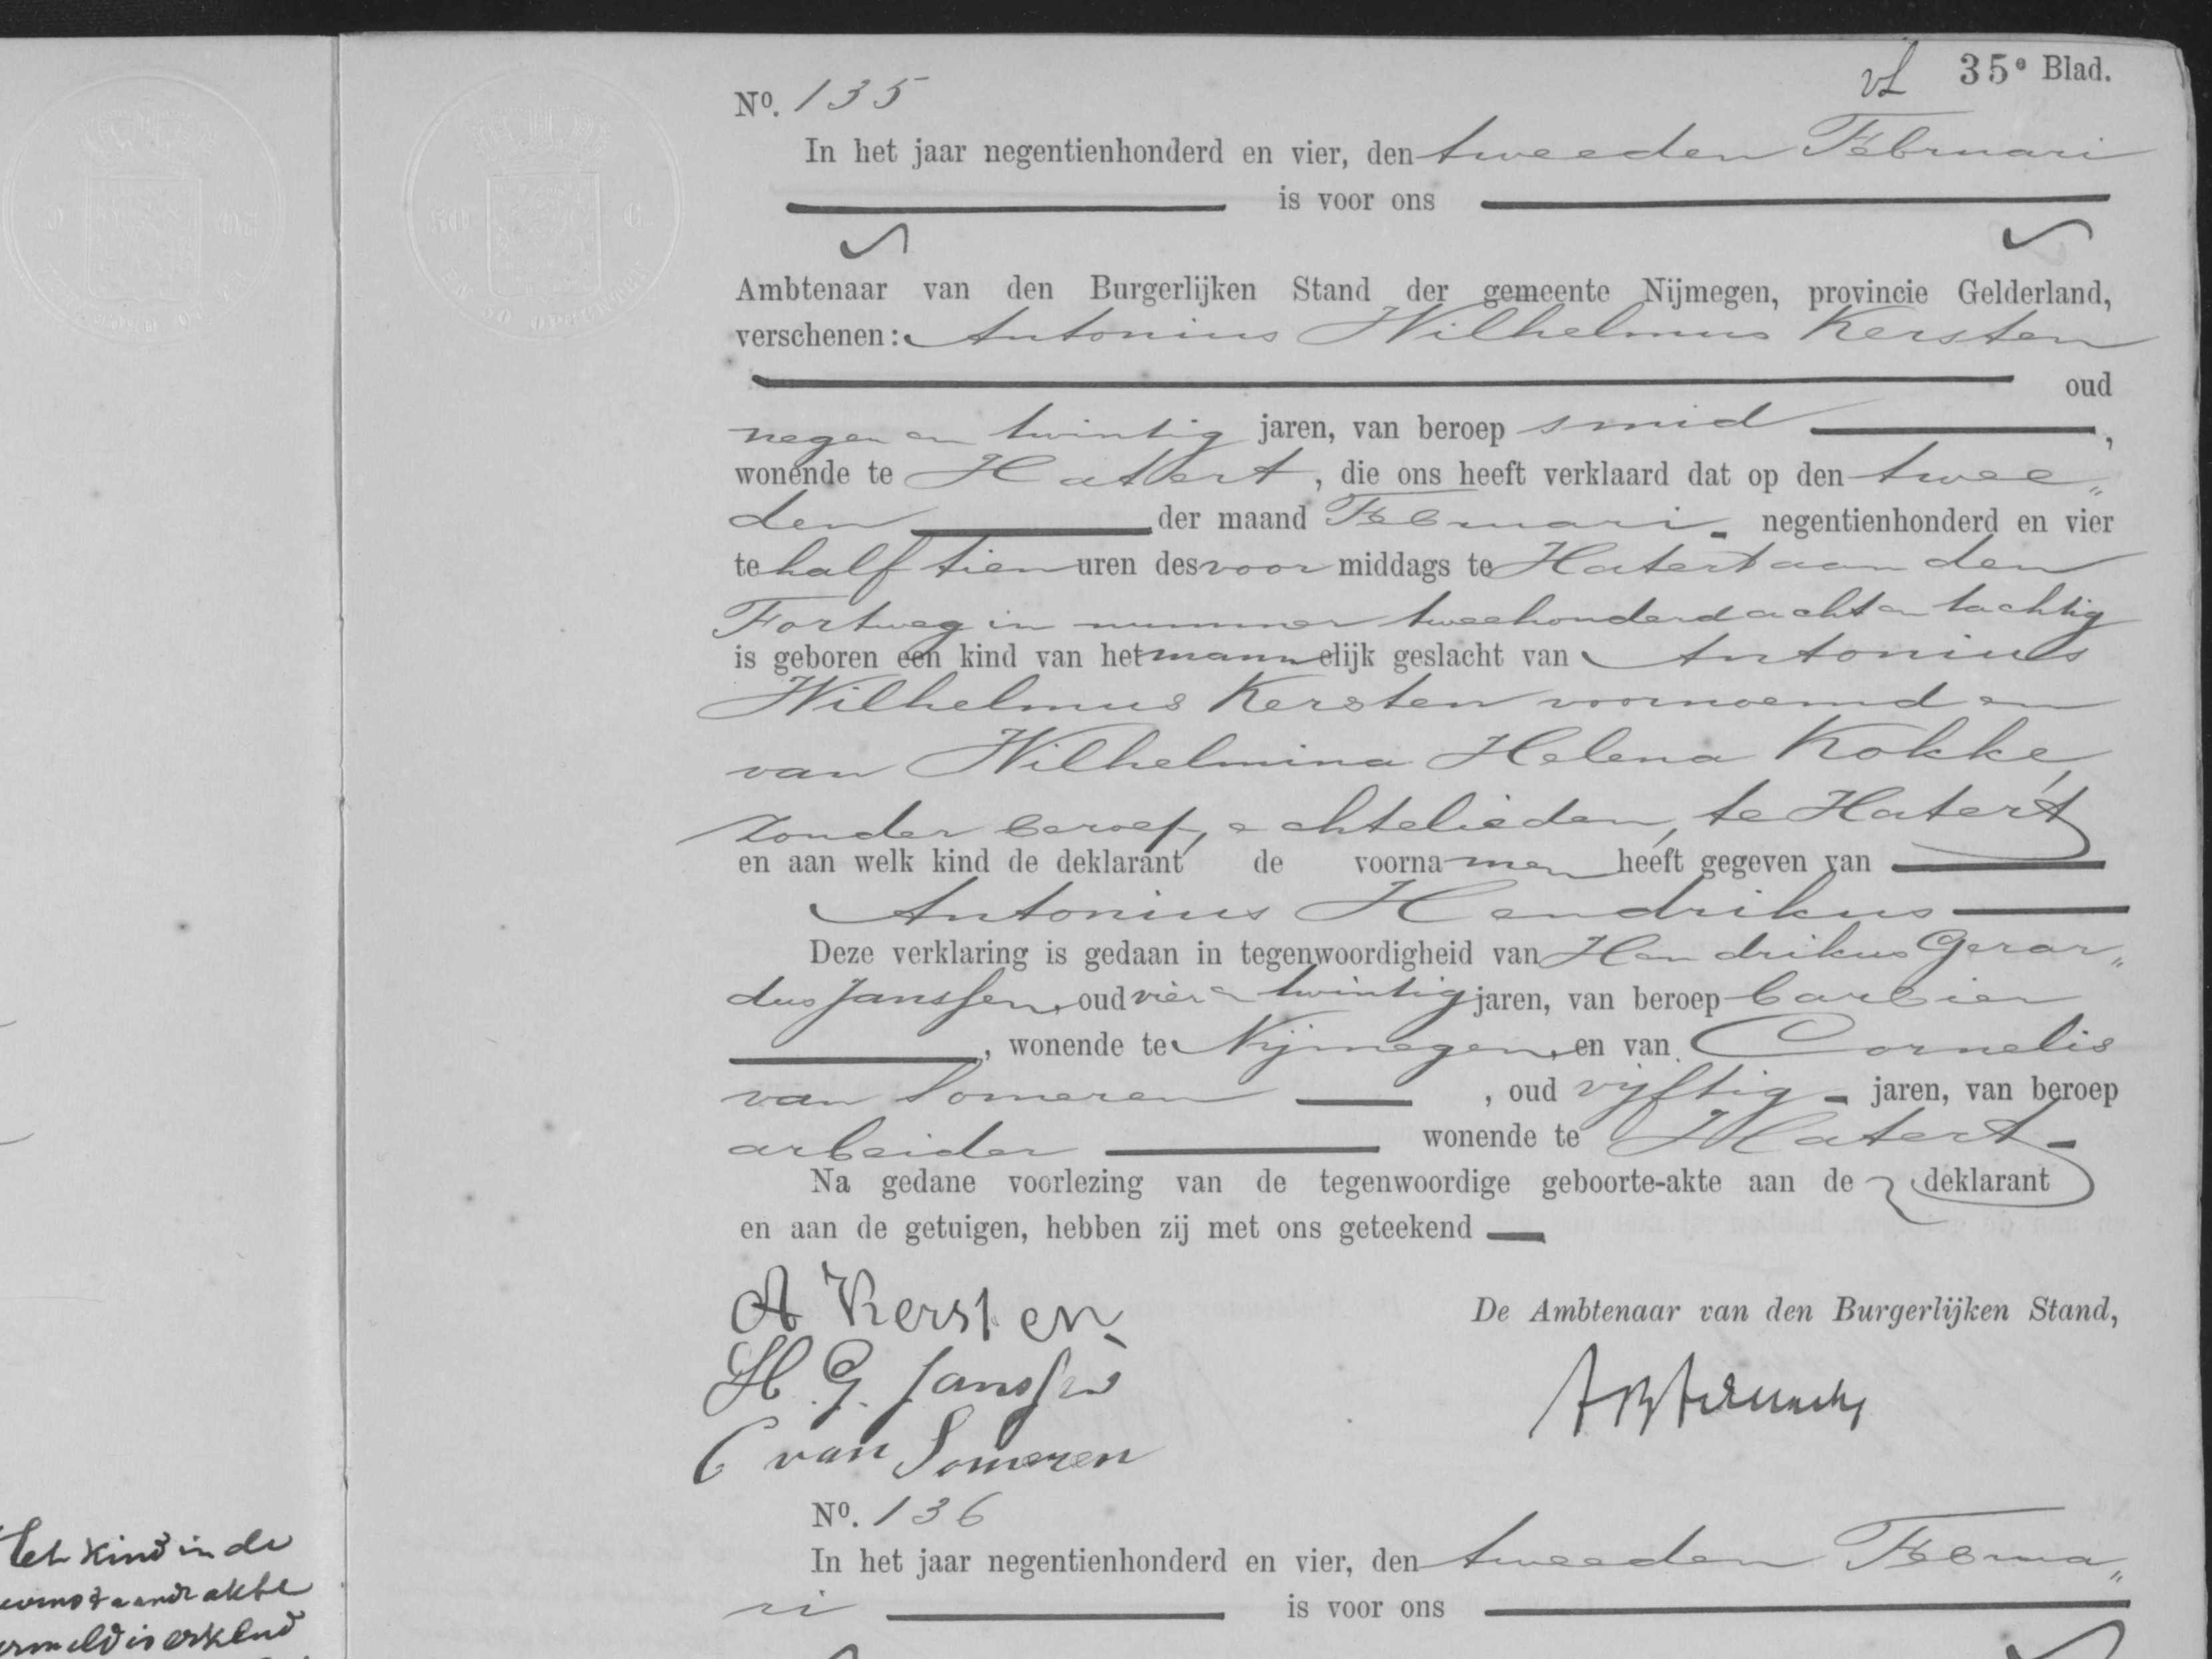 vL 35e Blad.
No. 135
In het jaar negentienhonderd en vier, den tweeden Februari
is voor ons
Ambtenaar van den Burgerlijken Stand der gemeente Nijmegen, provincie Gelderland,
verschenen: Antonius Wilhelmus Kersten
oud
negen en twintig jaren, van beroep smid ,
wonende te Hatert , die ons heeft verklaard dat op den twee„
den der maand Februari negentienhonderd en vier
te half tien uren des voor middags te Hatert aan den
Fortweg in nummer tweehonderd acht en tachtig
is geboren een kind van het mannelijk geslacht van Antonius
Wilhelmus Kersten voornoemd en
van Wilhelmina Helena Kokke,
zonder beroep, echtelieden, te Hatert
en aan welk kind de deklarant de voornamen heeft gegeven van
Antonius Hendrikus
Deze verklaring is gedaan in tegenwoordigheid van Hendrikus Gerar„
dus Janssen, oud vier en twintig jaren, van beroep barbier
, wonende te Nijmegen, en van Cornelis
van Someren , oud vijftig jaren, van beroep
arbeider wonende te Hatert
Na gedane voorlezing van de tegenwoordige geboorte-akte aan de deklarant
en aan de getuigen, hebben zij met ons geteekend
A Kersten
De Ambtenaar van den Burgerlijken Stand,
H. G. Janssen
C van Someren
No. 136
In het jaar negentienhonderd en vier, den tweeden Februa„
ri is voor ons
Het kind in de
akte
is erkend